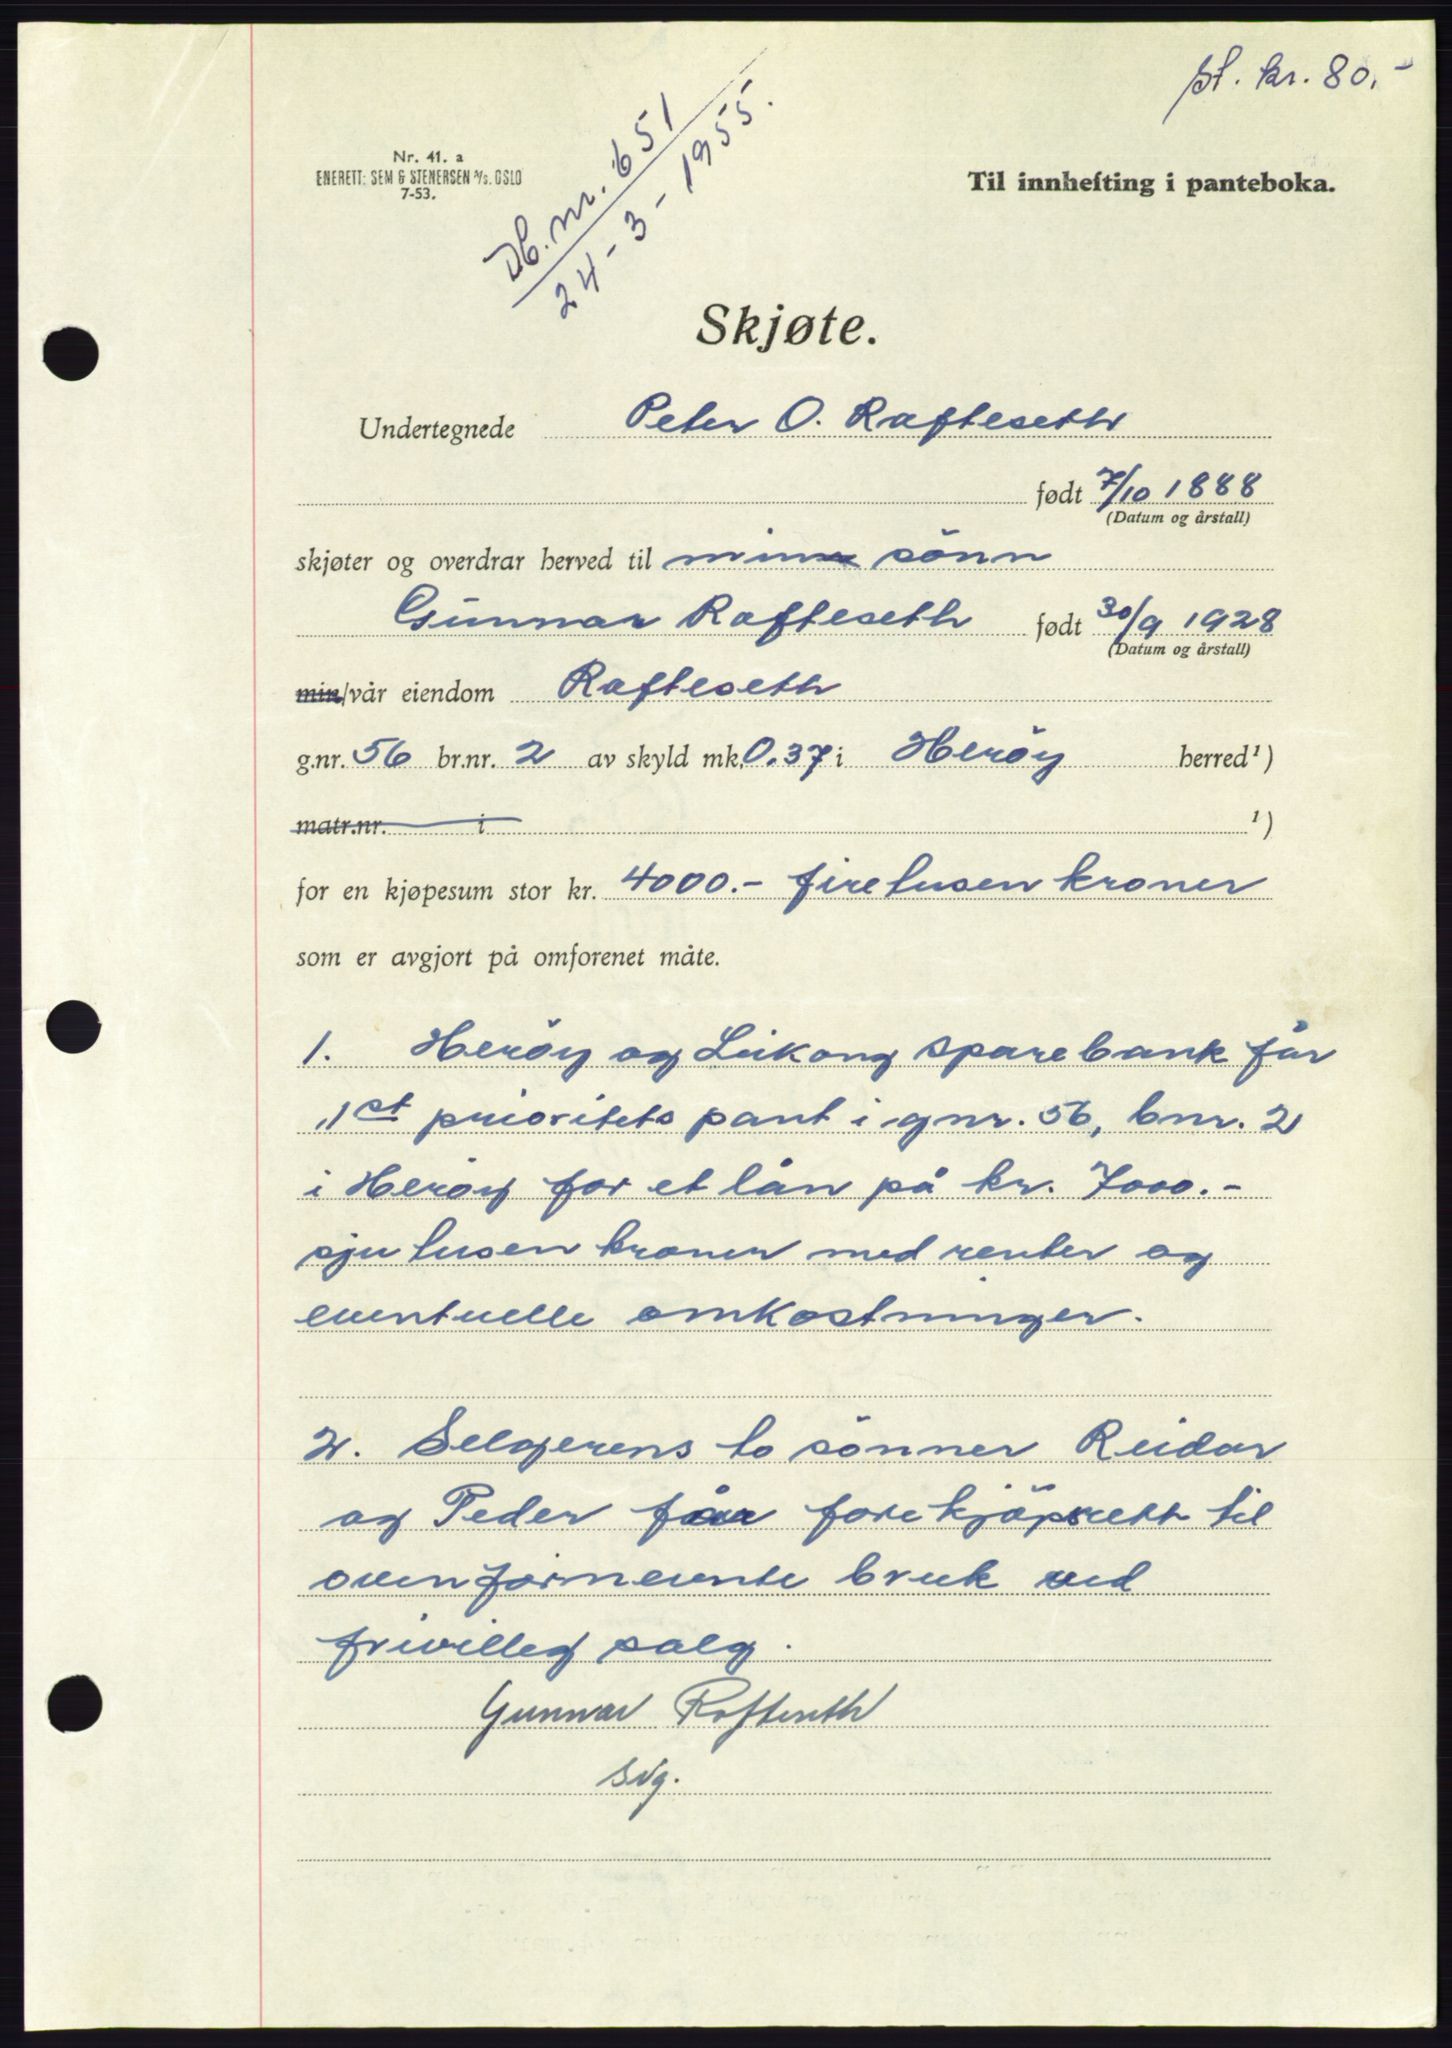 St. kr. 80.-
Db. nr. 651
24-3-1955.
Nr. 41. a
ENERETT: SEM & STENERSEN A/S. OSLO
7-53.
Til innhefting i panteboka.
Skjøte.
Undertegnede Peter O. Rafteseth
født 7/10 1888
(Datum og årstall)
skjøter og overdrar herved til min sönn
Gunnar Rafteseth født 30/9 1928
(Datum og årstall)
min/vår eiendom Rafteseth
g.nr. 56 br.nr. 2 av skyld mk. 0.37 i Heröy herred ¹)
matr.nr. i ¹)
for en kjøpesum stor kr. 4000.- firetusen kroner
som er avgjort på omforenet måte.
1. Heröy og Leikong sparebank får
1st prioritets pant i gnr. 56, bnr. 2
i Heröy for et lån på kr. 7000.-
sju tusen kroner med renter og
eventuelle omkostninger.
2. Selgerens to sönner Reidar
og Peder får forekjöpsrett til
ovenfornevnte bruk ved
frivilleg salg.
Gunnar Rafteseth
sig.